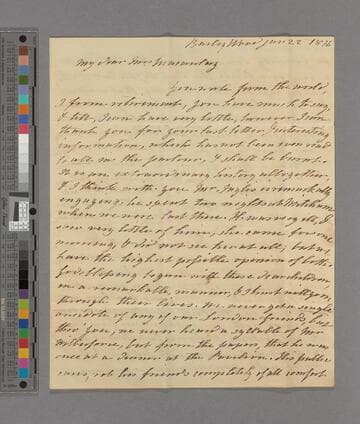 Barley Wood Jan 22 1816
My dear Mrs Macaulay
You write from the world,
I from retirement, you have much to say,
& tell, I can have very little, however I can
thank you for your last letter, & interesting
information, which has not been even read
to all in the parlour, & shall be burnt.
It is an extraordinary history altogether,
& I think with you Mr Inglis is remarkably
engaging, he spent two nights at
when we were last there. He was very ill, I
saw very little of him, she came for one
morning, & did not see her at all; but we
have the highest possible opinion of both.
God's blessing began with these dear children
in a remarkable manner, & I trust will go on,
through their lives. We never get a single
anecdote of any of our London friends but
thro' you, we never heard a syllable of Mr
Wilberforce, but from the papers, that he was
once at a dinner at the Pavilion. His public
cares, rob his friends completely of all comfort